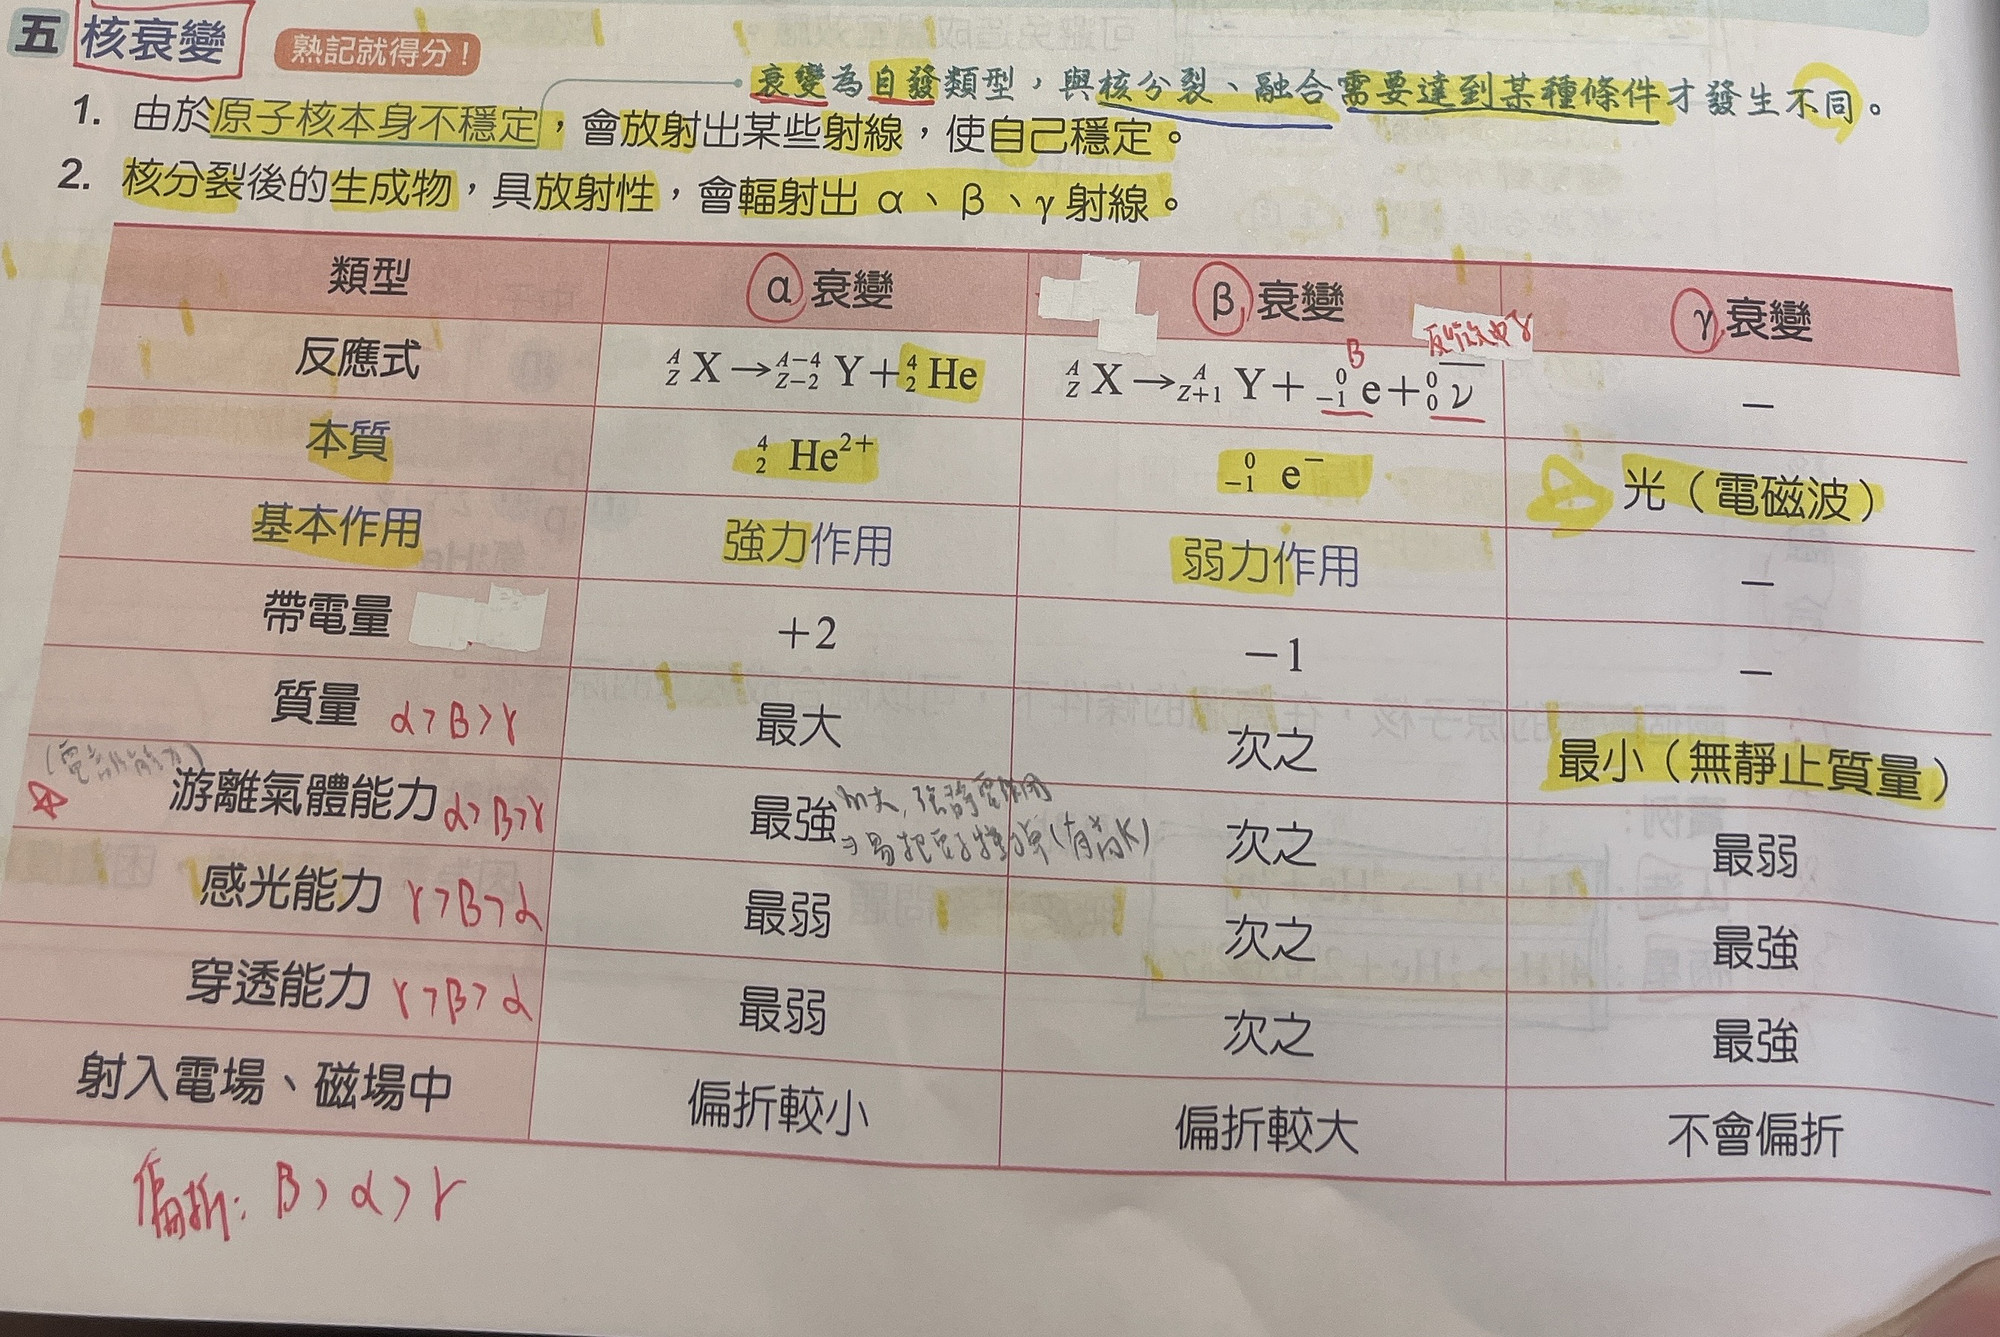 五 核衰變 熟記就得分！
衰變為自發類型，與核分裂、融合需要達到某種條件才發生不同。
1. 由於原子核本身不穩定，會放射出某些射線，使自己穩定。
2. 核分裂後的生成物，具放射性，會輻射出 α、β、γ 射線。
類型 α 衰變 β 衰變 γ 衰變
β
反應式 ᴬ_Z X → ᴬ⁻⁴_Z₋₂ Y + ⁴₂ He ᴬ_Z X → ᴬ_Z₊₁ Y + ⁰₋₁ e + ⁰₀ ν̅ －
本質 ⁴₂ He²⁺ ⁰₋₁ e⁻ 光（電磁波）
基本作用 強力作用 弱力作用 －
帶電量 +2 −1 －
質量 α>β>γ 最大 次之 最小（無靜止質量）
游離氣體能力 α>β>γ 最強 次之 最弱
感光能力 γ>β>α 最弱 次之 最強
穿透能力 γ>β>α 最弱 次之 最強
射入電場、磁場中 偏折較小 偏折較大 不會偏折
偏折：β>α>γ